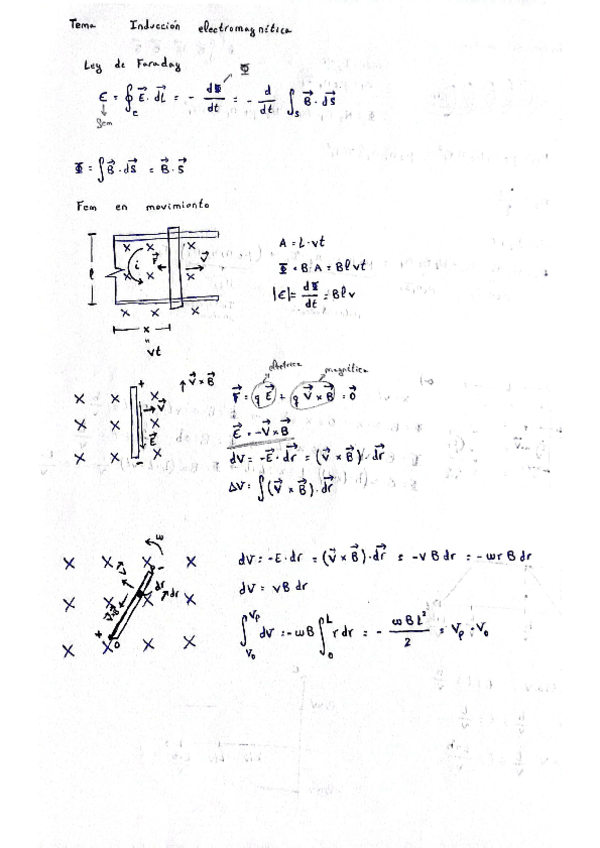 Tema Inducción electromagnética
Ley de Faraday
ε = ∮_C E⃗ · dL⃗ = - dΦ/dt = - d/dt ∫_S B⃗ · dS⃗
Φ
fem
Φ = ∫ B⃗ · dS⃗ = B⃗ · S⃗
Fem en movimiento
x x x
l i F⃗ v⃗
x x x
x x x
x
"
vt
A = L · vt
Φ = B · A = Blvt
|ε| = dΦ/dt = Blv
+ ↑ v⃗ x B⃗
x x x
v⃗
x x x
E⃗
x x x
-
eléctrica magnética
F⃗ = q E⃗ + q v⃗ x B⃗ = 0⃗
E⃗ = -v⃗ x B⃗
dV = -E⃗ · dr⃗ = (v⃗ x B⃗) · dr⃗
ΔV = ∫ (v⃗ x B⃗) · dr⃗
ω
x x x x
v⃗ p -
x x dr dr⃗ x
v⃗xB⃗
+ o
x x x x
dV = -E · dr = (v⃗ x B⃗) · dr⃗ = -vB dr = -ωr B dr
dV = vB dr
∫_{V₀}^{Vp} dV = -ωB ∫_0^L r dr = - ωBL²/2 = Vp - V₀